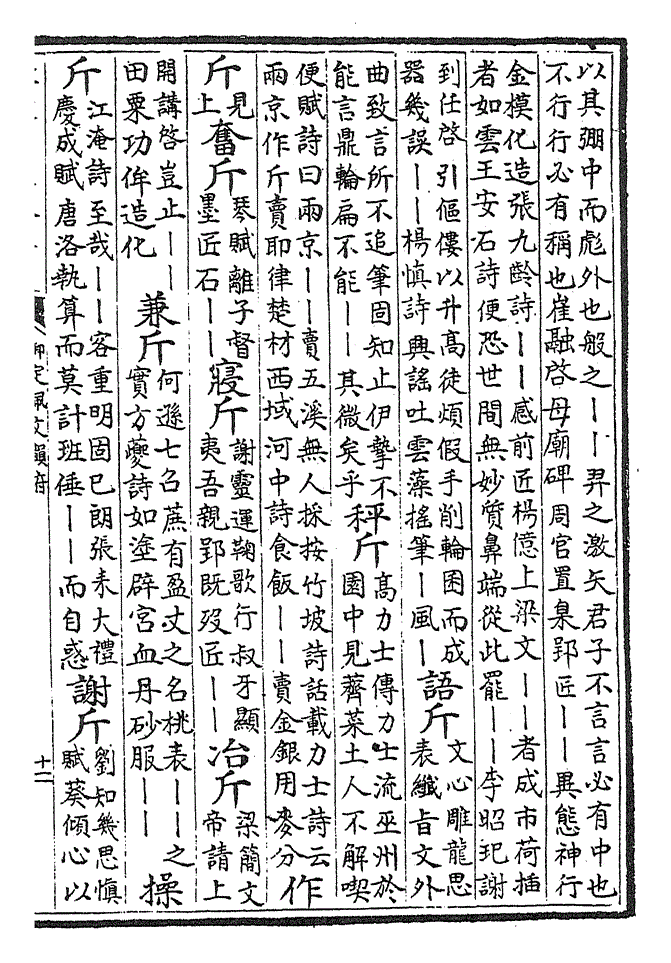 以其弸中而彪外也般之——羿之激矢君子不言言必有中也
不行行必有稱也崔融啓母廟碑周官置臬郢匠——異態神行
金模化造張九齡詩——感前匠楊億上梁文——者成市荷插
者如雲王安石詩便恐世間無妙質鼻端從此罷——李昭玘謝
到任啓引傴僂以升髙徒煩假手削輪囷而成
器幾誤——楊慎詩興謡吐雲藻摇筆—風—
語斤
文心雕龍思
表纎旨文外
曲致言所不追筆固知止伊摯不
能言鼎輪扁不能——其微矣乎
秤斤
髙力士傳力士流巫州於
園中見薺菜土人不解喫
便賦詩曰兩京——賣五溪無人採按竹坡詩話載力士詩云
兩京作斤賣耶律楚材西域河中詩食飯——賣金銀用麥分
作
斤
見
上
奮斤
琴賦離子督
墨匠石——
寢斤
謝靈運鞠歌行叔牙顯
夷吾親郢既歿匠——
冶斤
梁簡文
帝請上
開講啓豈止——
田粟功侔造化
兼斤
何遜七召蔗有盈丈之名桃表——之
實方夔詩如塗辟宫血丹砂服——
操
斤
江淹詩至哉——客重明固已朗張耒大禮
慶成賦唐洛執算而莫計班倕——而自惑
謝斤
劉知幾思慎
賦葵傾心以
御定佩文韻府
十二